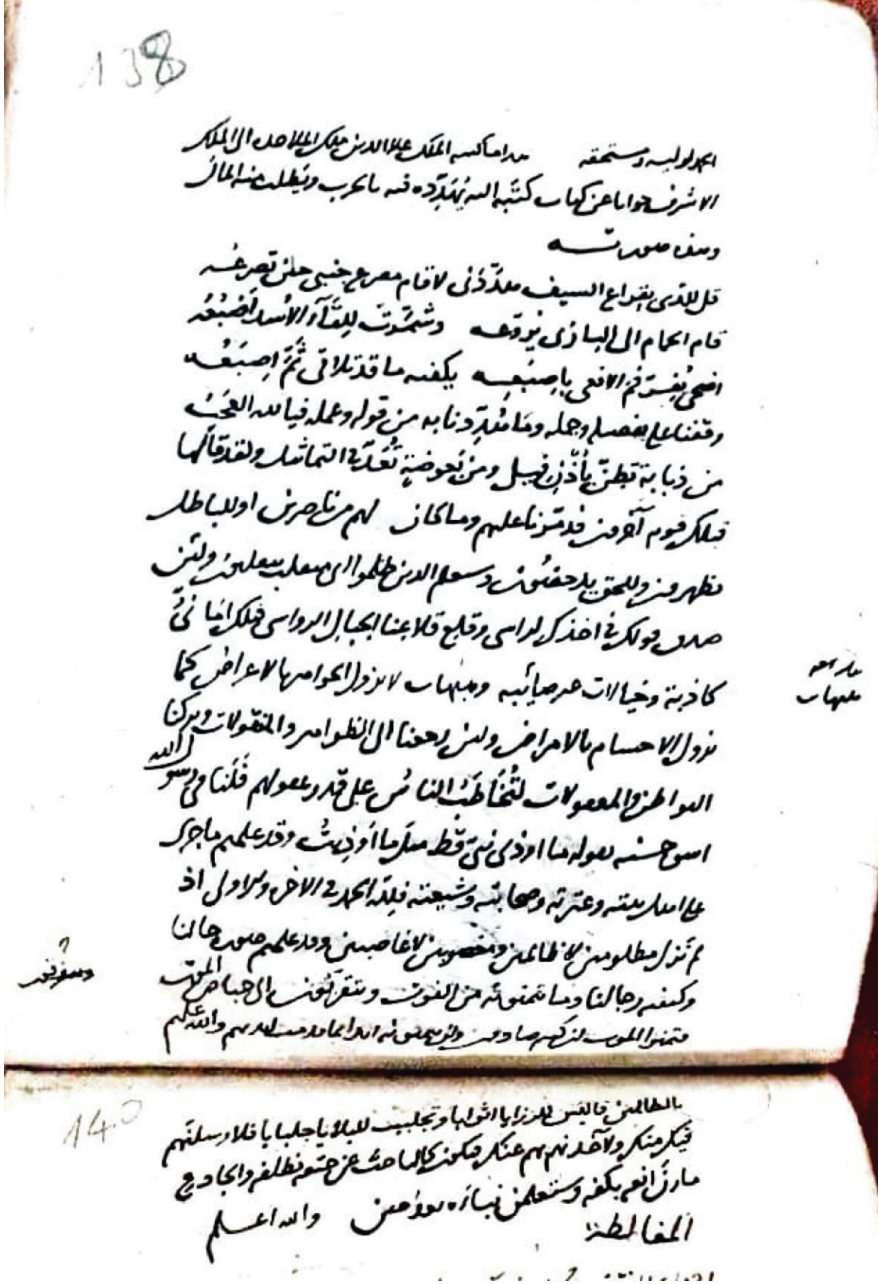 138
الحمد لوليه ومستحقه هذا ما كتبه الملك علا الدين ملك الملاحده الى الملك
الاشرف جوابا عن كتاب كتبه اليه يهدده فيه بالحرب ويطلب منه المال
وهذه صورته
قل للذى بقراع السيف هددنى لا قام مصرع جنبى حين تصرعه
قام الحمام الى البازى يروعه وشمرت للقاء الأسد اضبعه
اضحى يسد فم الافعى باصبعه يكفيه ما قد تلاقى ثم اصبعه
وقفنا على تفصيله وجمله وما هددنا به من قوله وعمله فيا لله العجب
من ذبابة تطن بأذن فيل ومن بعوضة تعد فى التماثيل ولقد قالها
قبلك قوم آخرون فدمرنا عليهم وما كان لهم من ناصرين او للباطل
تظهرون وللحق تدحضون وسيعلم الذين ظلموا اى منقلب ينقلبون ولئن
صدق قولك فى اخذك لراسى وقلع قلاعنا الجبال الرواسى فتلك امانىّ
كاذبة وخيالات غير صائبه وهيهات لا تزول الجواهر بالاعراض كما
تزول الاجسام بالامراض ولئن رجعنا الى الظواهر والمنقولات وتركنا
البواطن والمعقولات لنخاطب الناس على قدر عقولهم فلنا فى رسول الله
اسوة حسنه لقوله ما اوذى نبى قط مثل ما أوذيت وقد علمتم ما جرى
على اهل بيته وعترته وصحابته وشيعته فلله الحمد فى الاخره والاولى اذ
لم نزل مظلومين لا ظالمين ومغصوبين لا غاصبين وقد علمتم صورة حالنا
وكيفيه رجالنا وما يتمنونه من الفوت ويتقربون الى حياض الموت
فتمنوا الموت ان كنتم صادقين ولن يتمنونه ابدا بما قدمت ايديهم والله عليم
هيهات
140
بالظالمين فالبس للرزايا اثوابا وتجلبب للبلايا جلبابا فلارسلنهم
فيك منك ولآخذنهم بهم عنك فتكون كالباحث عن حتفه بظلفه والجادع
مارن انفه بكفه ولتعلمن نبأه بعد حين والله اعلم